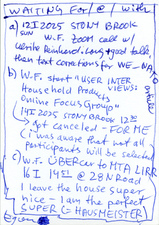 WAITING for / W / with
a) 12 I 2025 STONY BROOK
SUN W.F. ZOOM call w/
good talk,
then text corrections for WE-NATO
article
b) W.F. start "USER INTER
VIEWS:
Household Products
Online Focus Group"
14 I 2025 STONY BROOK 12
got canceled - FOR ME
(i was aware that not all
participants will be selected
c) W.F. ÜBER car to MTA LIRR
16 I 14 @ 28 N Road
I leave the house super
nice - I am the perfect
SUPER (= HAUSMEISTER)